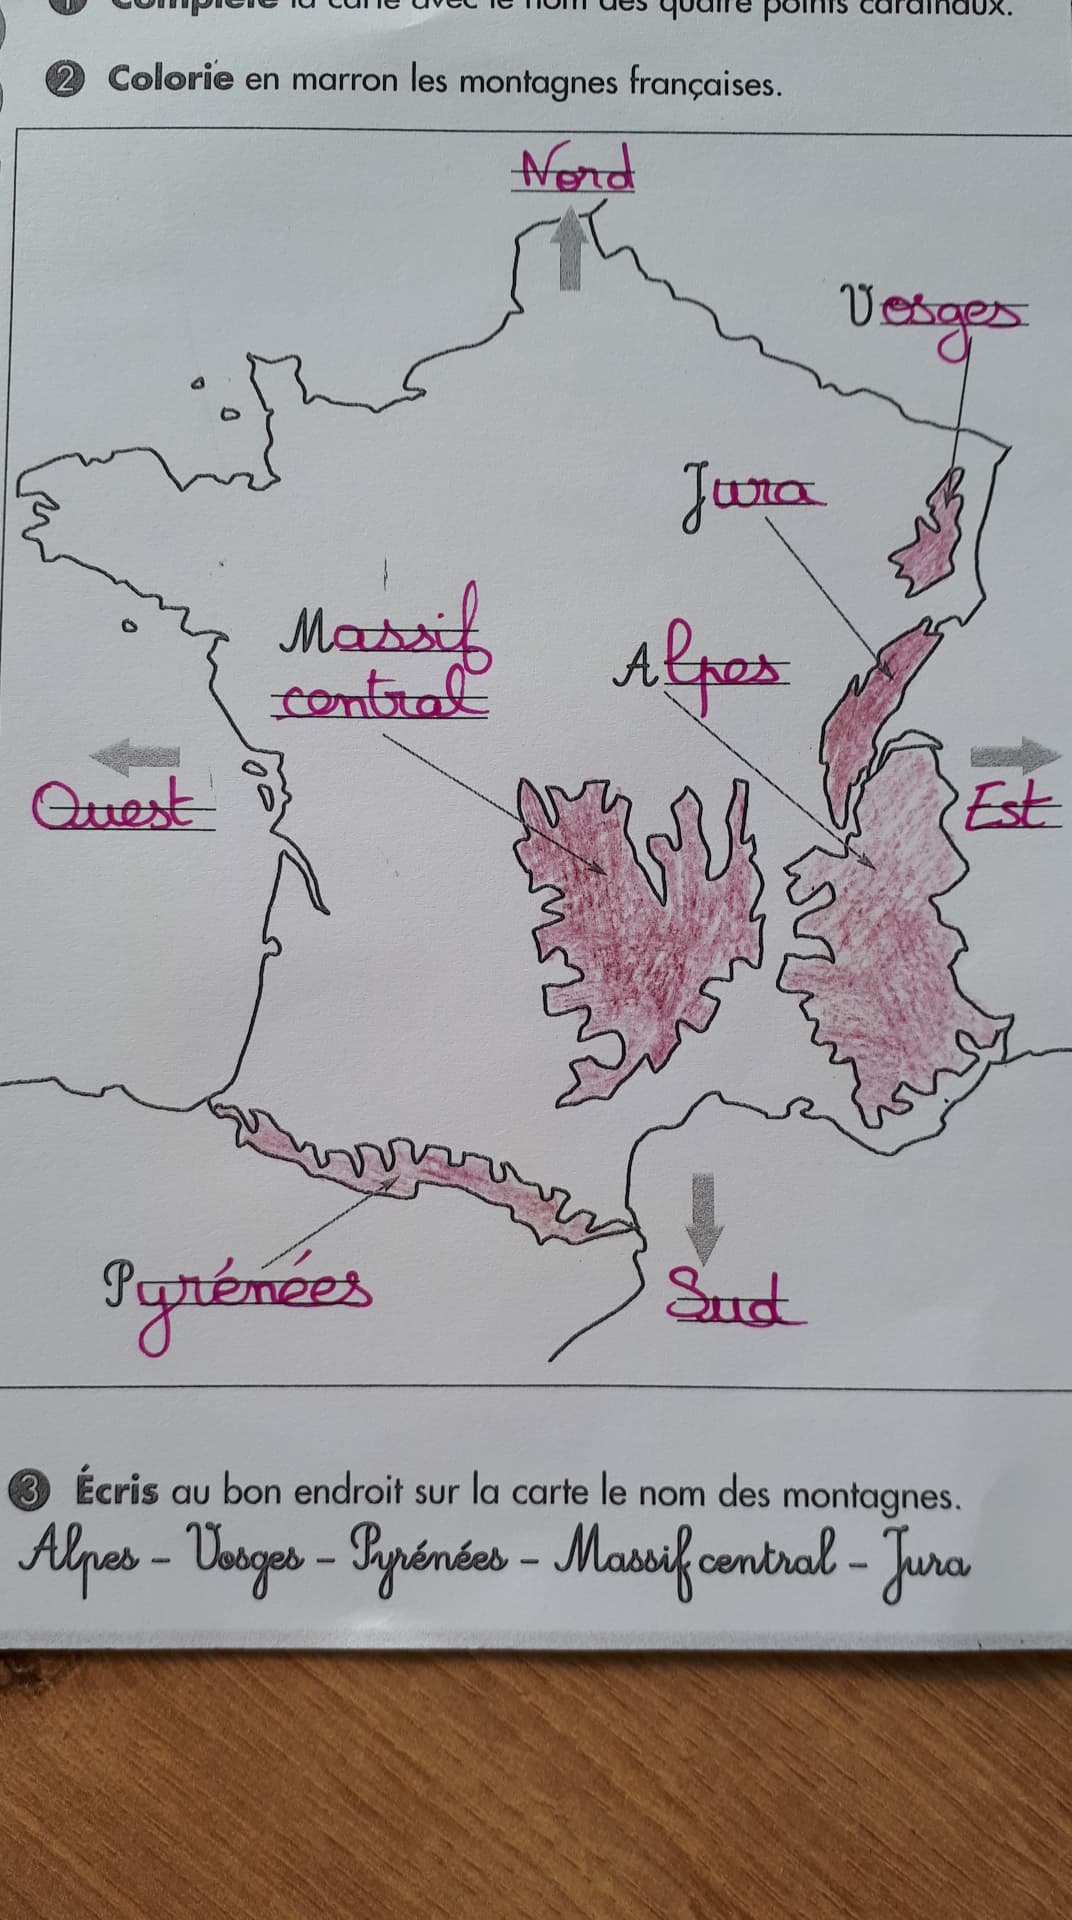 1 Complète la carte avec le nom des quatre points cardinaux.
2 Colorie en marron les montagnes françaises.
Nord
Vosges
Jura
Massif
central
Alpes
Ouest
Est
Pyrénées
Sud
3 Écris au bon endroit sur la carte le nom des montagnes.
Alpes – Vosges – Pyrénées – Massif central – Jura